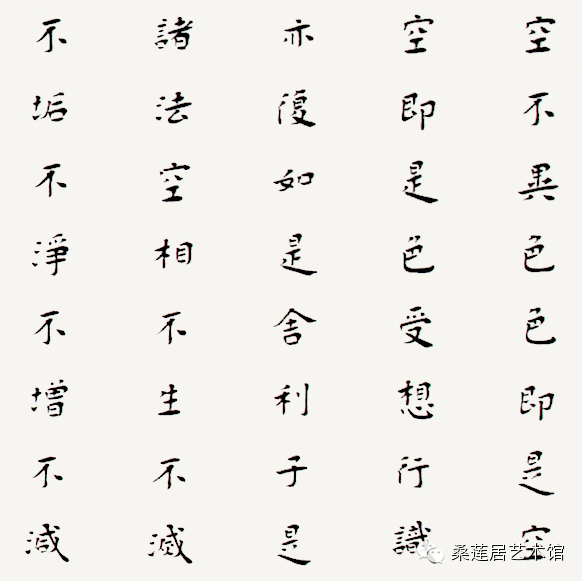 空不異色色即是空
空即是色受想行識
亦復如是舍利子是
諸法空相不生不滅
不垢不淨不增不減
桑莲居艺术馆